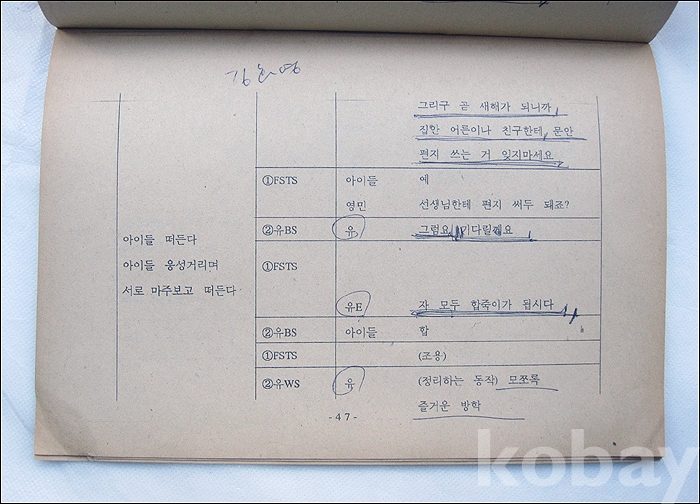 그리구 곧 새해가 되니까,
집안 어른이나 친구한테, 문안
편지 쓰는 거 잊지마세요
①FSTS 아이들 예
영민 선생님한테 편지 써두 돼죠?
②유BS 유 그럼요 기다릴께요
아이들 떠든다
아이들 웅성거리며 ①FSTS
서로 마주보고 떠든다
유E 자 모두 합죽이가 됩시다
②유BS 아이들 합
①FSTS (조용)
②유WS 유 (정리하는 동작) 모쪼록
즐거운 방학
-47-
kobay